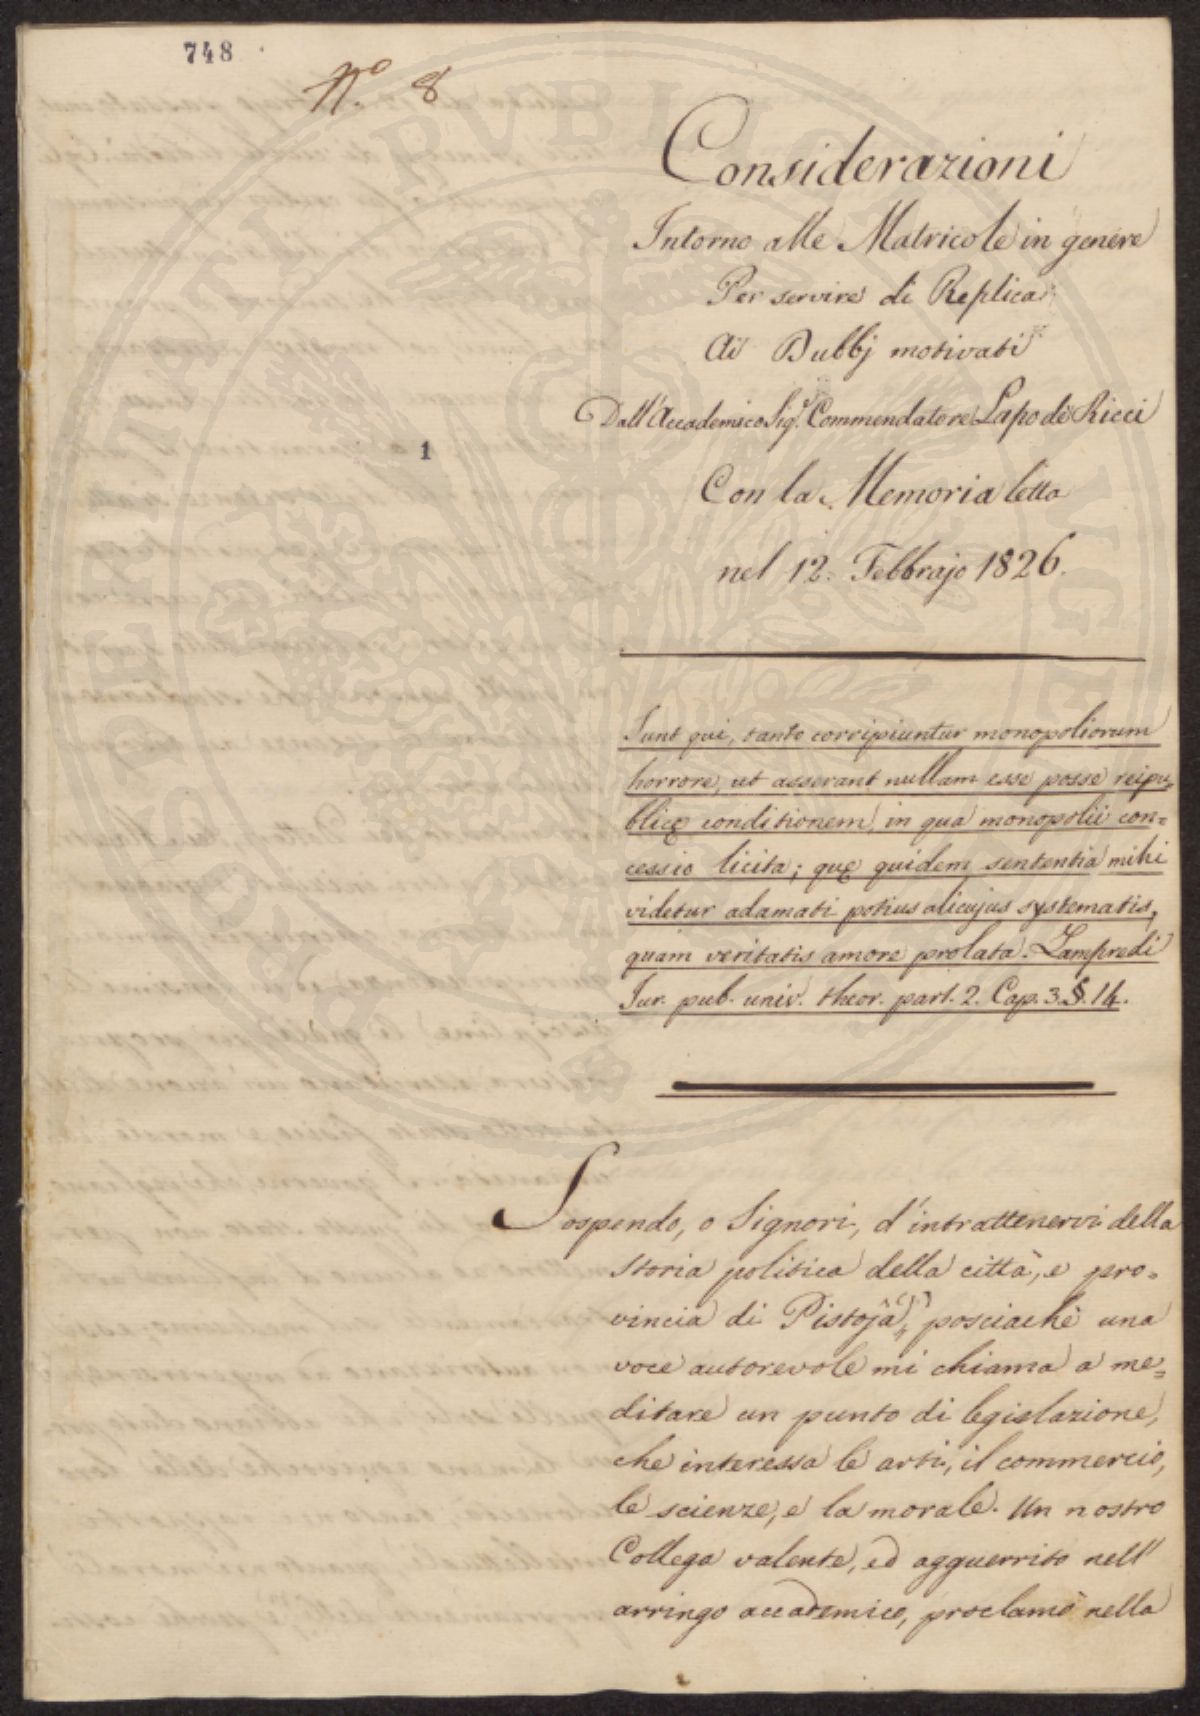 748
N.º 8
Considerazioni
Intorno alle Matricole in genere
Per servire di Replica
Ai Dubbj motivati
Dall'Accademico Sig.r Commendatore Lapo de Ricci
Con la Memoria letta
nel 12. Febbrajo 1826.
1
Sunt qui, tanto corripiuntur monopoliorum
horrore, ut asserant nullam esse posse reipu=
blicę conditionem, in qua monopolii con=
cessio licita; quę quidem sententia mihi
videtur adamati potius alicujus systematis,
quam veritatis amore prolata. Lampredi
Jur. pub. univ. theor. part. 2. Cap. 3. §. 14.
Sospendo, o Signori, d'intrattenervi della
storia politica della città, e pro=
vincia di Pistoja (1), posciachè una
voce autorevole mi chiama a me=
ditare un punto di legislazione,
che interessa le arti, il commercio,
le scienze, e la morale. Un nostro
Collega valente, ed agguerrito nell'
arringo accademico, proclamò nella